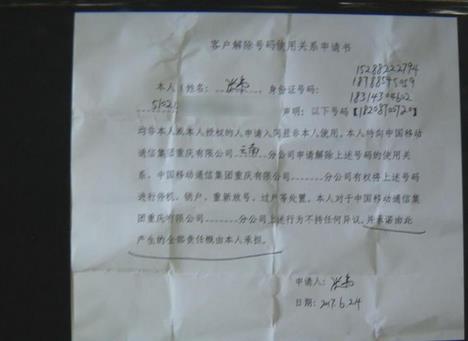 客户解除号码使用关系申请书
15288222794
18788545059
本人（姓名： 身份证号码： 18314304602
51021 声明：以下号码【18208900720】
均非本人或本人授权的人申请入网且非本人使用。本人特向中国移动
通信集团重庆有限公司云南分公司申请解除上述号码的使用关
系。中国移动通信集团重庆有限公司........分公司有权将上述号码
进行停机、销户、重新放号、过户等处置。本人对于中国移动通信集
团重庆有限公司........分公司上述行为不持任何异议，并承诺由此
产生的全部责任概由本人承担。
申请人：
日期：2017.6.24